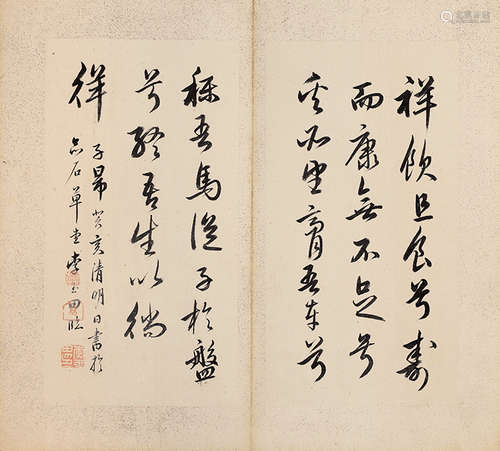 祥飲且食兮壽
而康無不足兮
奚所望膏吾車兮
秣吾馬從子於盤
兮終吾生以徜
徉
子昂 癸亥清明日書於
石草堂李 田臨